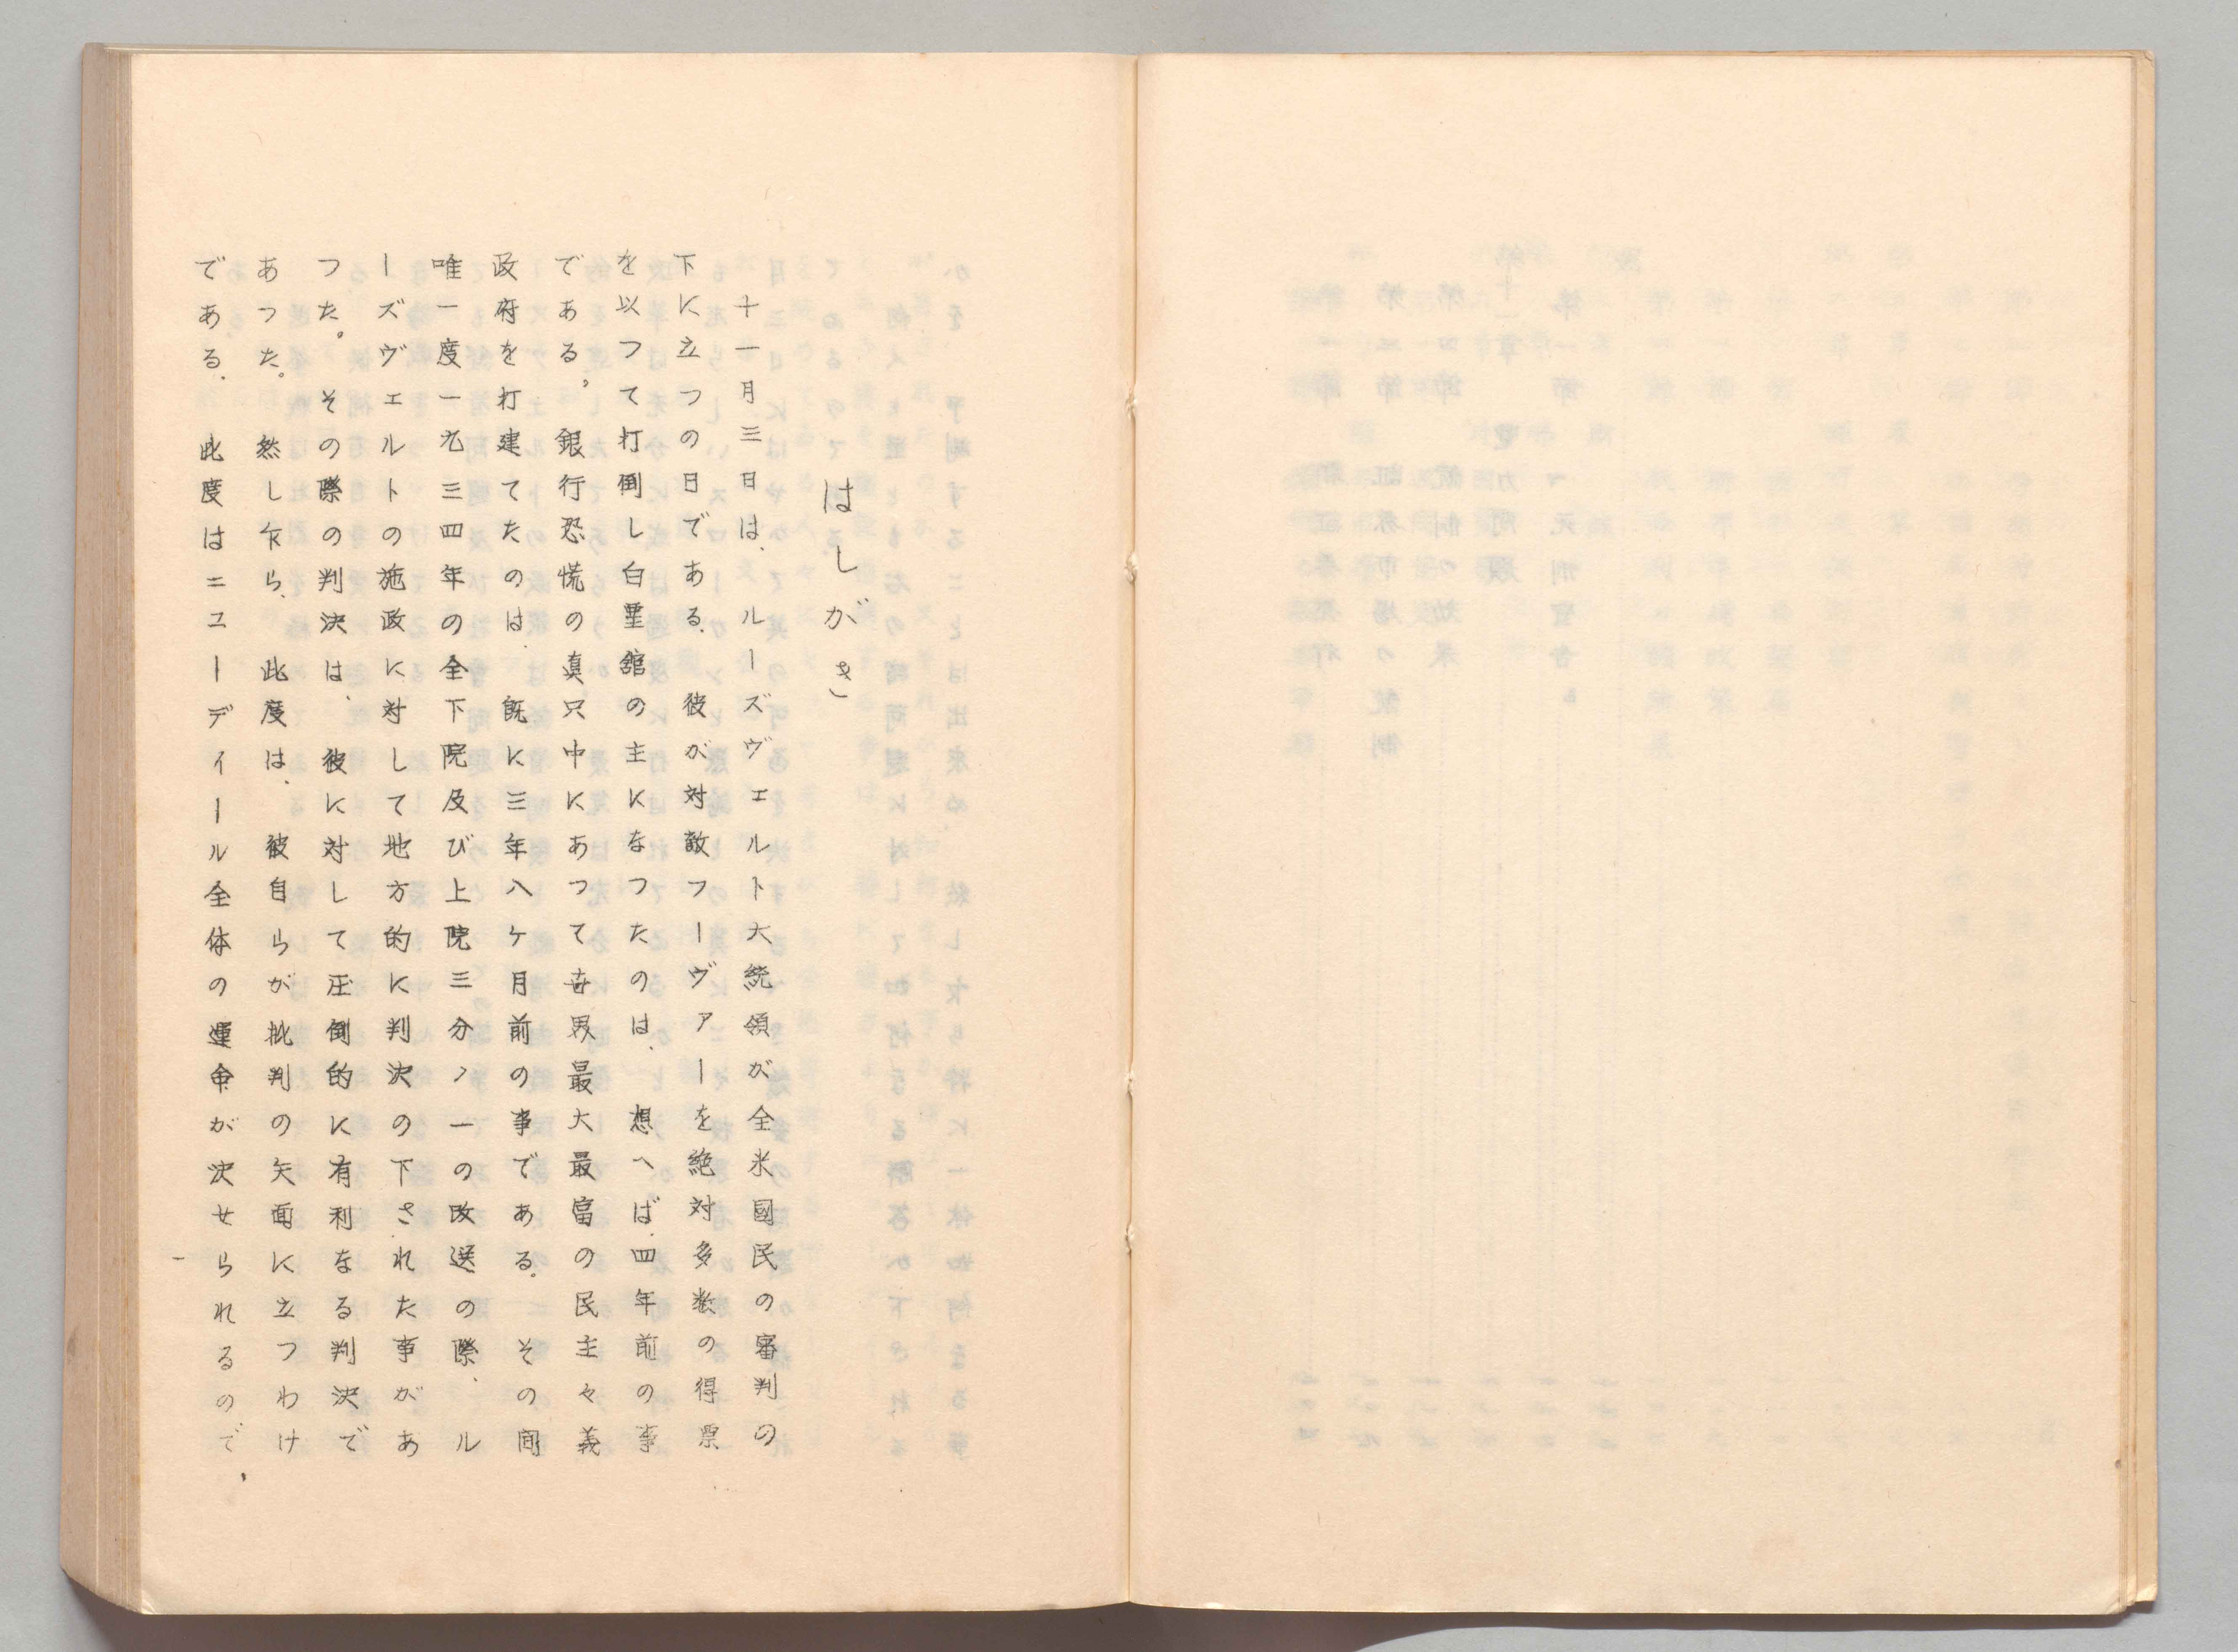 はしがき
十一月三日は、ルーズヴェルト大統領が全米國民の審判の
下に立つの日である。彼が対敵フーヴァーを絶対多数の得票
を以つて打倒し白堊舘の主になつたのは、想へば、四年前の事
である。銀行恐慌の真只中にあつて世界最大最富の民主々義
政府を打建てたのは、既に三年八ヶ月前の事である。その間
唯一度一九三四年の全下院及び上院三分ノ一の改選の際、ル
ーズヴェルトの施政に対して地方的に判決の下された事があ
つた。その際の判決は、彼に対して圧倒的に有利なる判決で
あつた。然し乍ら、此度は、彼自らが批判の矢面に立つわけ
である。此度はニューディール全体の運命が決せられるので、
一